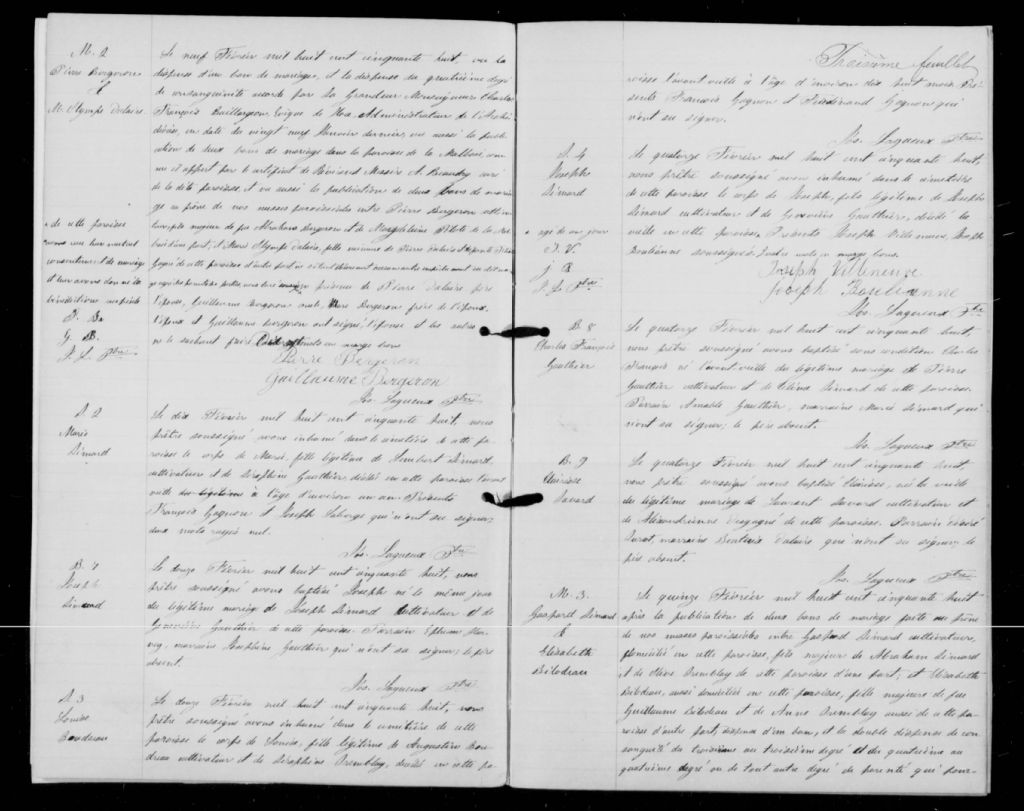 M. 2
Pierre Bergeron
&
M. Olympe Dalaire
Le neuf Février mil huit cent cinquante huit, vu la
dispense d'un ban de mariage, et la dispense du quatrième degré
de consanguinité accordé par Sa Grandeur Monseigneur Charles
François Baillargeon, Evêque de Tloa, Administrateur de l'Archi
diocèse, en date du vingt neuf Janvier dernier, vu aussi la publi
cation de deux bans de mariage dans la paroisse de la Malbaie, com
me il appert par le certificat de Révérend Messire A. Beaudry curé
de la dite paroisse, et vu aussi la publication de deux bans de maria
ge au prône de nos messes paroissiales entre Pierre Bergeron
majeur de feu Abraham Bergeron et de Magdeleine Pilote de la Mal
baie d'une part, et Marie Olympe Dalaire, fille mineure de Pierre Dalaire et
de cette paroisse d'autre part
de cette paroisse
nous
consentement de mariage
et leur avons donné la
bénédiction nuptiale
P. B.
G. B.
J. L. Ptre
présence de Pierre Dalaire père
l'épouse, Guillaume Bergeron oncle, Bergeron frère de l'époux.
L'époux et Guillaume Bergeron ont signé, l'épouse et les autres
ne le sachant faire. mots en marge bons
Pierre Bergeron
Guillaume Bergeron
Jos. Lagueux Ptre
S. 2
Marie
Simard
Le dix Février mil huit cent cinquante huit, nous
prêtre soussigné avons inhumé dans le cimetière de cette pa
roisse le corps de Marie, fille légitime de Simard,
cultivateur et de Séraphine Gauthier, décédée en cette paroisse l'avant
veille à l'âge d'environ un an. Présents
François Gagnon et Joseph qui n'ont su signer;
deux mots rayés nul.
Jos. Lagueux Ptre
B. 7
Joseph
Simard
Le douze Février mil huit cent cinquante huit, nous
prêtre soussigné avons baptisé Joseph né le même jour
du légitime mariage de Joseph Simard cultivateur et de
Geneviève Gauthier de cette paroisse. Parrain Ephrem
marraine Joséphine Gauthier qui n'ont su signer; le père
absent.
Jos. Lagueux Ptre
S. 3
Louise
Boudreau
Le douze Février mil huit cent cinquante huit, nous
prêtre soussigné avons inhumé dans le cimetière de cette
paroisse le corps de Louise, fille légitime de Augustin Bou
dreau cultivateur et de Séraphine Tremblay, décédée en cette pa
Troisième feuillet
roisse l'avant veille à l'âge d'environ dix huit mois. Pré
sents François Gagnon et Ferdinand Gagnon qui
n'ont su signer.
Jos. Lagueux Ptre
S. 4
Joseph
Simard
agé de un jour
J. V.
J. B
J. L. Ptre
Le quatorze Février mil huit cent cinquante huit,
nous prêtre soussigné avons inhumé dans le cimetière
de cette paroisse le corps de Joseph, fils légitime de Joseph
Simard cultivateur et de Geneviève Gauthier, décédé la
veille en cette paroisse. Présents Joseph Villeneuve, Joseph
Boulianne soussignés. mots en marge bons.
Joseph Villeneuve
Joseph Bouelienne
Jos. Lagueux Ptre
B. 8
Charles François
Gauthier
Le quatorze Février mil huit cent cinquante huit,
nous prêtre soussigné avons baptisé sous condition Charles
François né l'avant veille du légitime mariage de Pierre
Gauthier cultivateur et de Célina Simard de cette paroisse.
Parrain Amable Gauthier, marraine Marie Simard qui
n'ont su signer; le père absent.
Jos. Lagueux Ptre
B. 9
Clarisse
Savard
Le quatorze Février mil huit cent cinquante huit,
nous prêtre soussigné avons baptisé Clarisse, née la veille
du légitime mariage de Laurent Savard cultivateur et
de Alexandrienne Desgagné de cette paroisse. Parrain Désiré
marraine Béatrix Dalaire qui n'ont su signer; le
père absent.
Jos. Lagueux Ptre
M. 3.
Gaspard Simard
&
Elisabeth
Bilodeau
Le quinze Février mil huit cent cinquante huit
après la publication de deux bans de mariage faite au prône
de nos messes paroissiales entre Gaspard Simard cultivateur,
domicilié en cette paroisse, fils majeur de Abraham Simard
et de Tremblay de cette paroisse d'une part; et Elisabeth
Bilodeau, aussi domiciliée en cette paroisse, fille majeure de feu
Guillaume Bilodeau et de Anne Tremblay aussi de cette pa
roisse d'autre part, dispense d'un ban, et la double dispense de con
sanguité du troisième au troisième degré et du quatrième au
quatrième degré ou de tout autre degré de parenté qui pour-